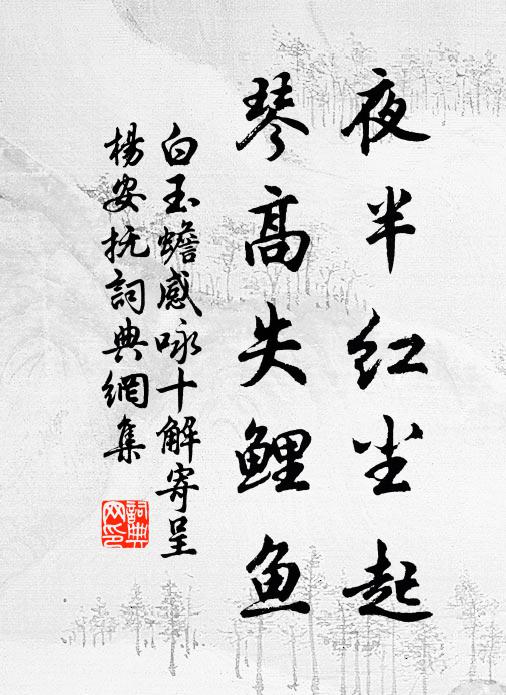 夜半红尘起
琴高失鲤鱼
白玉蟾感咏十解寄呈
楊安抚詞典網集
詞典网印